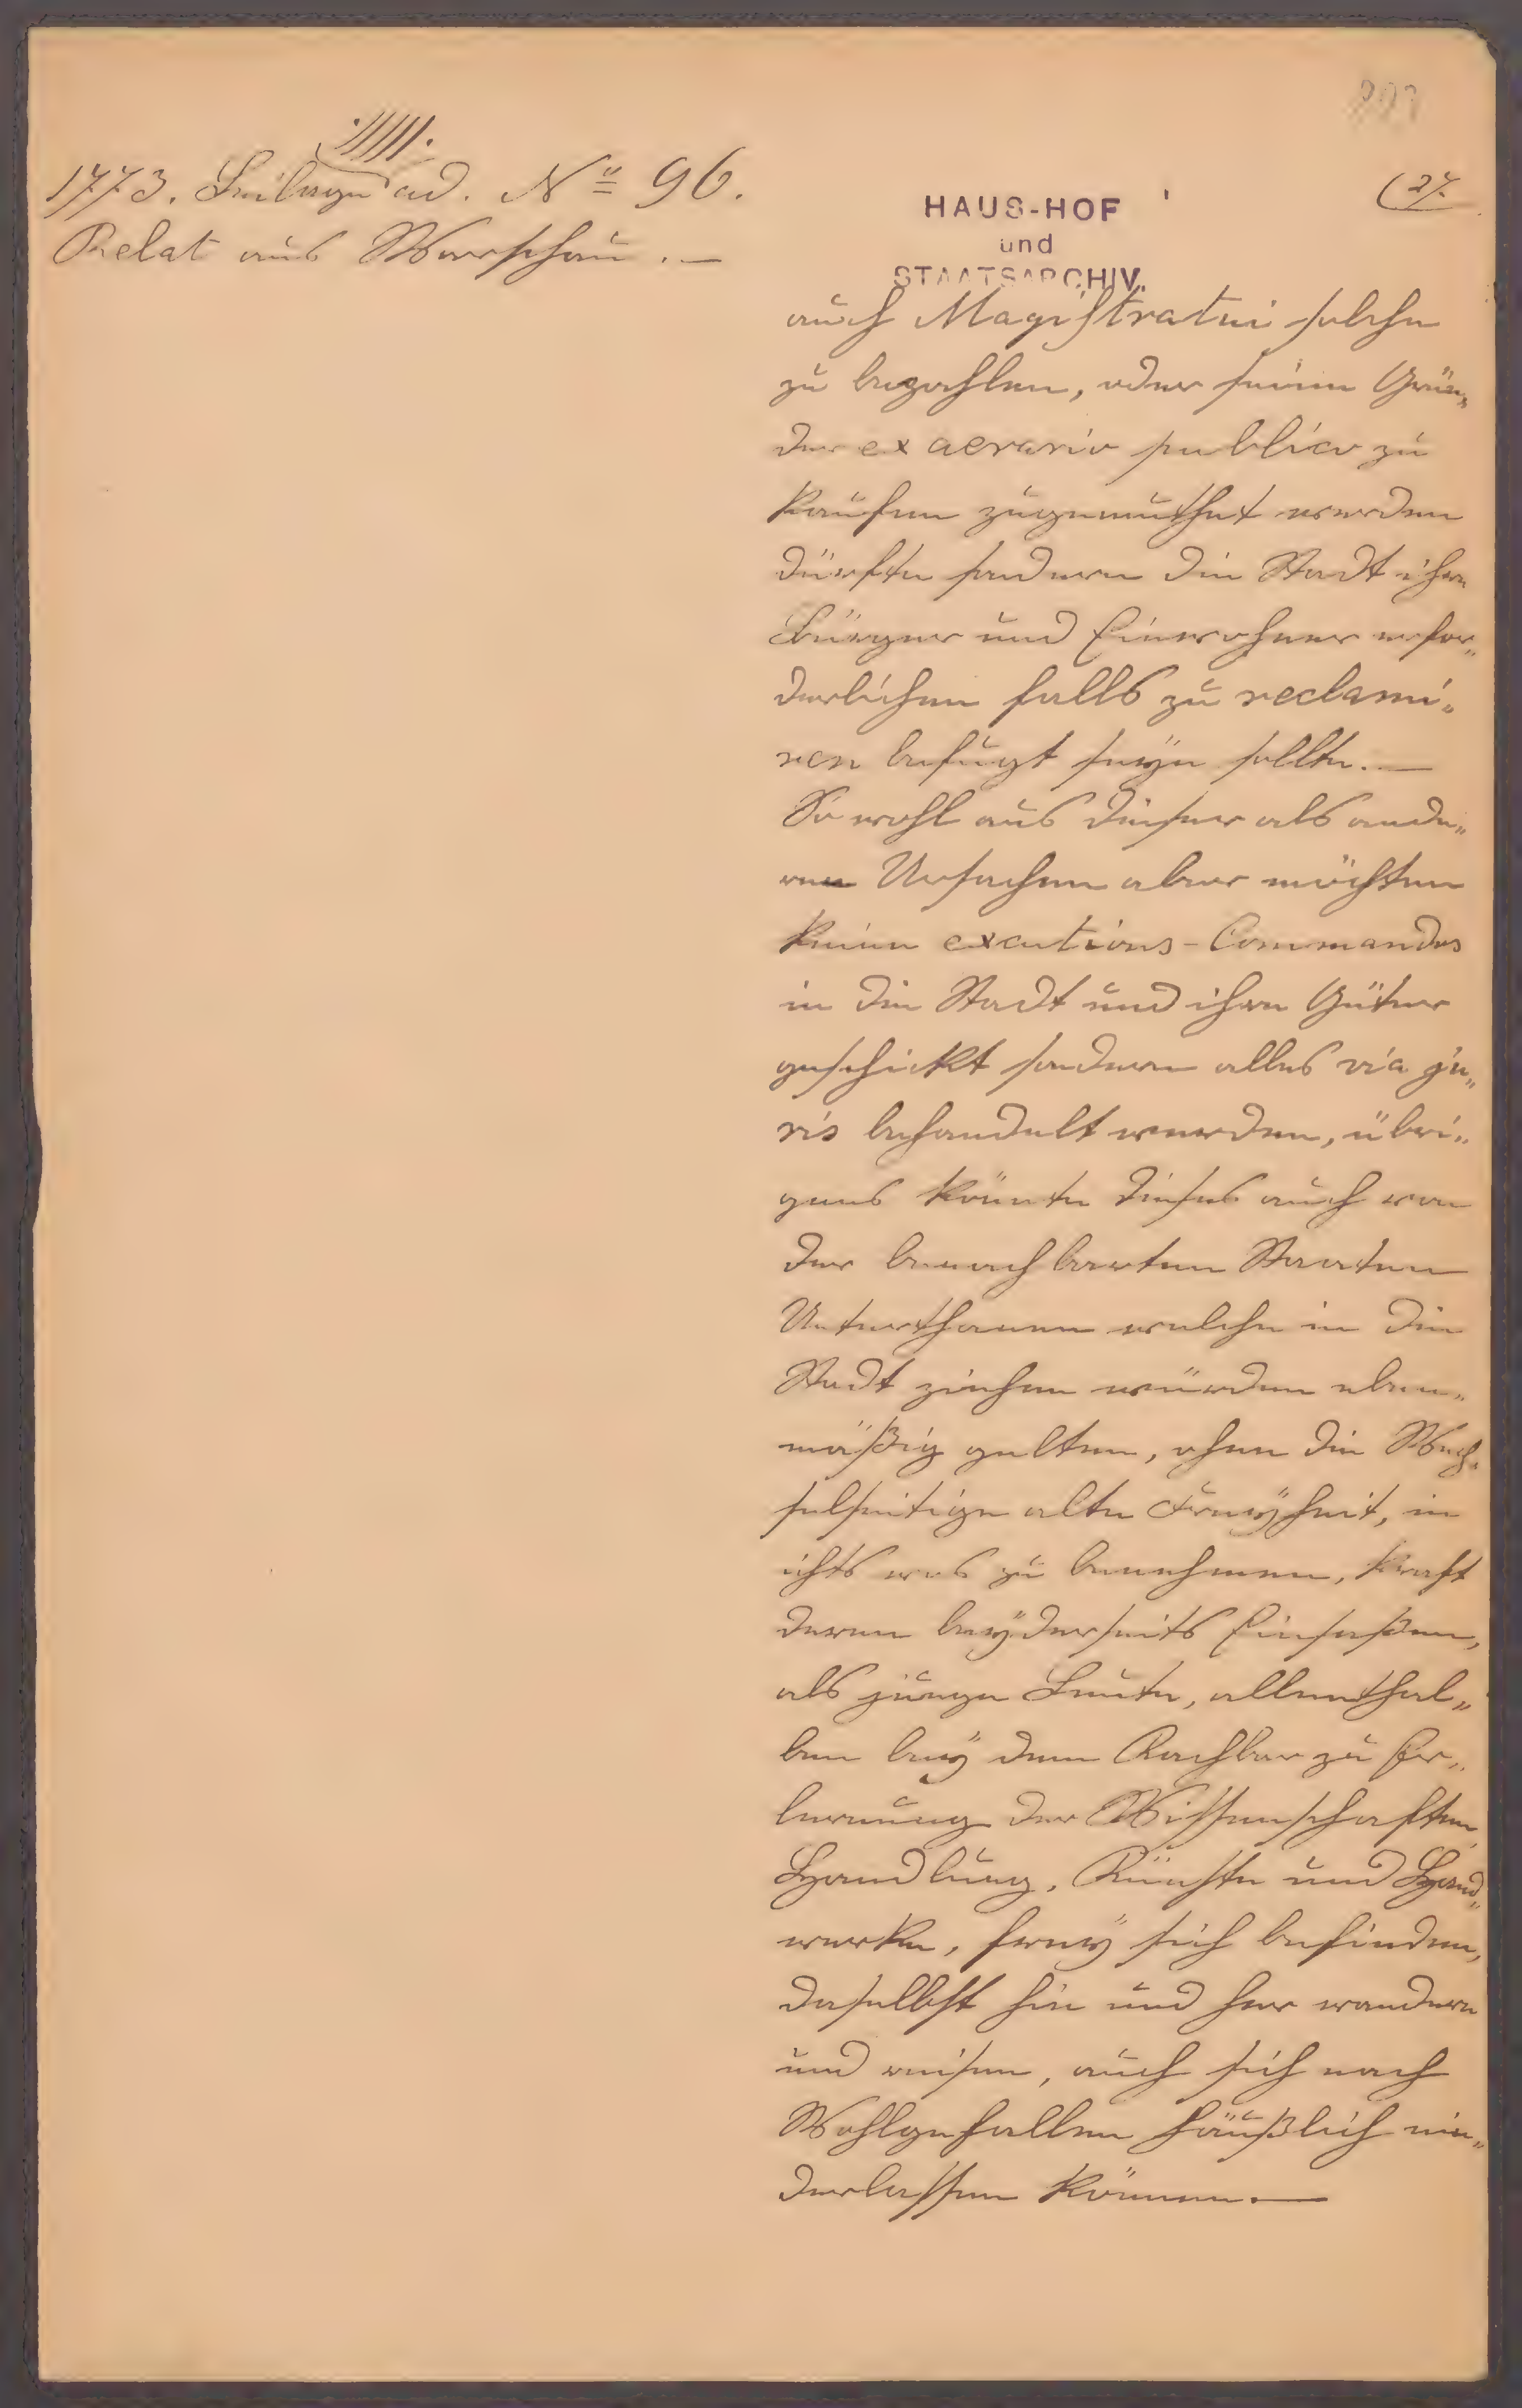 ·/////·
1773. Beilage ad. No 96.
Relat aus Warschau. —
(27.
HAUS-HOF
und
STAATSARCHIV.
auch Magistratui solche
zu bezahlen, oder seine Grün„
der ex aerario publico zu
kaufen zugemuthet werden
dürfte sondern die Stadt ihre
Bürger und Einwohner erfor„
derlichen falls zu reclami„
ren befugt seyn sollte. —
So wohl aus dieser als ande„
ren Ursachen aber möchten
keine excutions-Commandos
in die Stadt und ihre Güter
geschickt sondern alles via ju„
ris behandelt werden, übri„
gens könnte dieses auch von
der benachbarten Staaten
Unterthanen welche in die
Stadt ziehen würden eben„
mäßig gelten, ohne die Wech„
selseitige alte Freyheit, in
ichts was zu benehmen, kraft
deren beyderseits Einsaßen,
als junge Leute, allenthal„
ben bey dem Nachbar zu Er„
lernung der Wissenschaften,
Handlung, Künste und Hand„
werke, frey sich befinden,
daselbst hin und her wandern
und reisen, auch sich nach
Wohlgefallen häußlich nie„
derlassen können. —